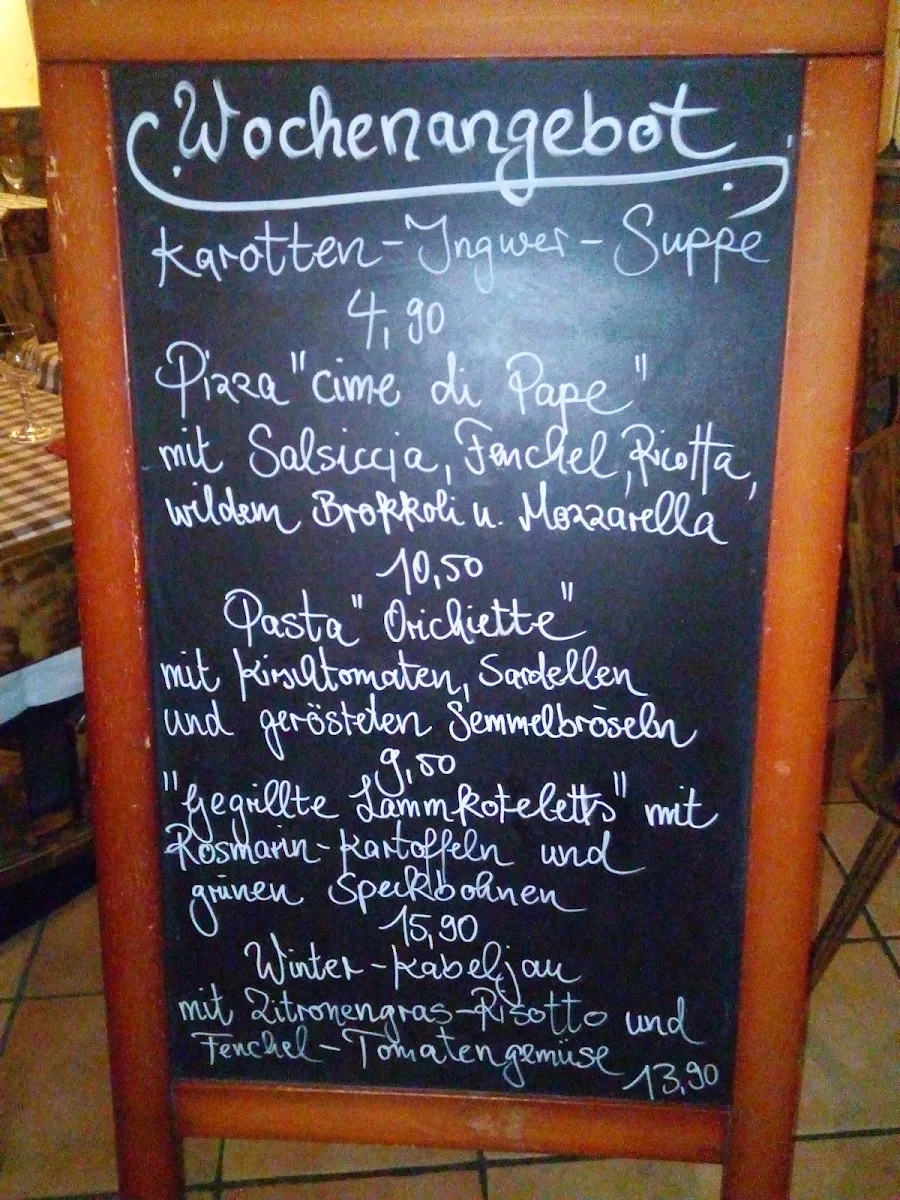 Wochenangebot
Karotten-Ingwer-Suppe
4,90
Pizza "cime di Pape"
mit Salsiccia, Fenchel, Ricotta,
wildem Brokkoli u. Mozzarella
10,50
Pasta "Orichiette"
mit Kirschtomaten, Sardellen
und gerösteten Semmelbröseln
9,50
"Gegrillte Lammkoteletts" mit
Rosmarin-Kartoffeln und
grünen Speckbohnen
15,90
Winter-Kabeljau
mit Zitronengras-Risotto und
Fenchel-Tomatengemüse
13,90